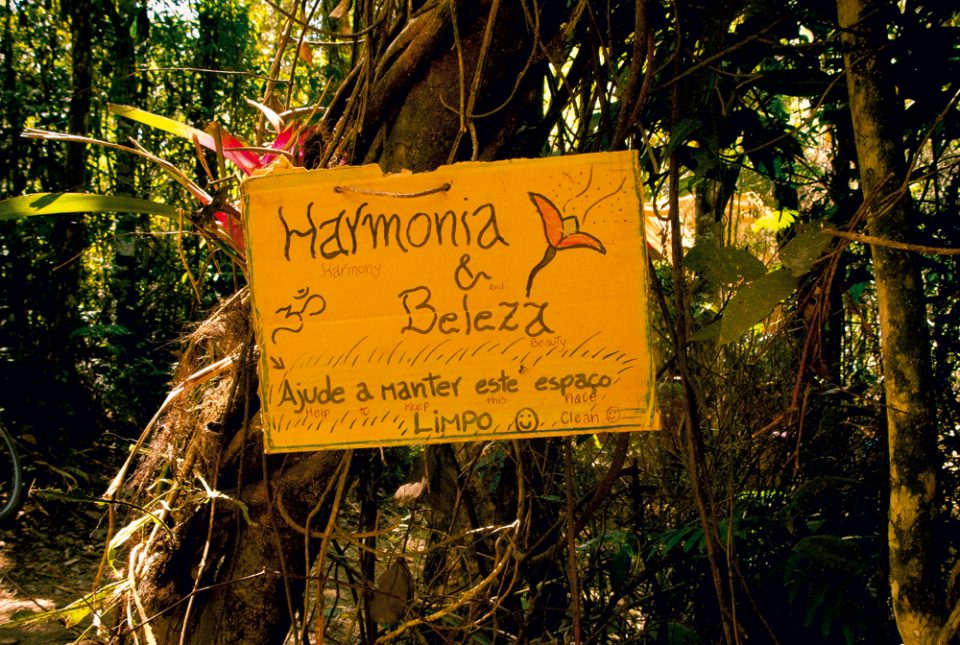 Harmonia
Harmony
&
And
ॐ
Beleza
Beauty
Ajude a manter este espaço
Help to keep this Place
LiMPO
Clean